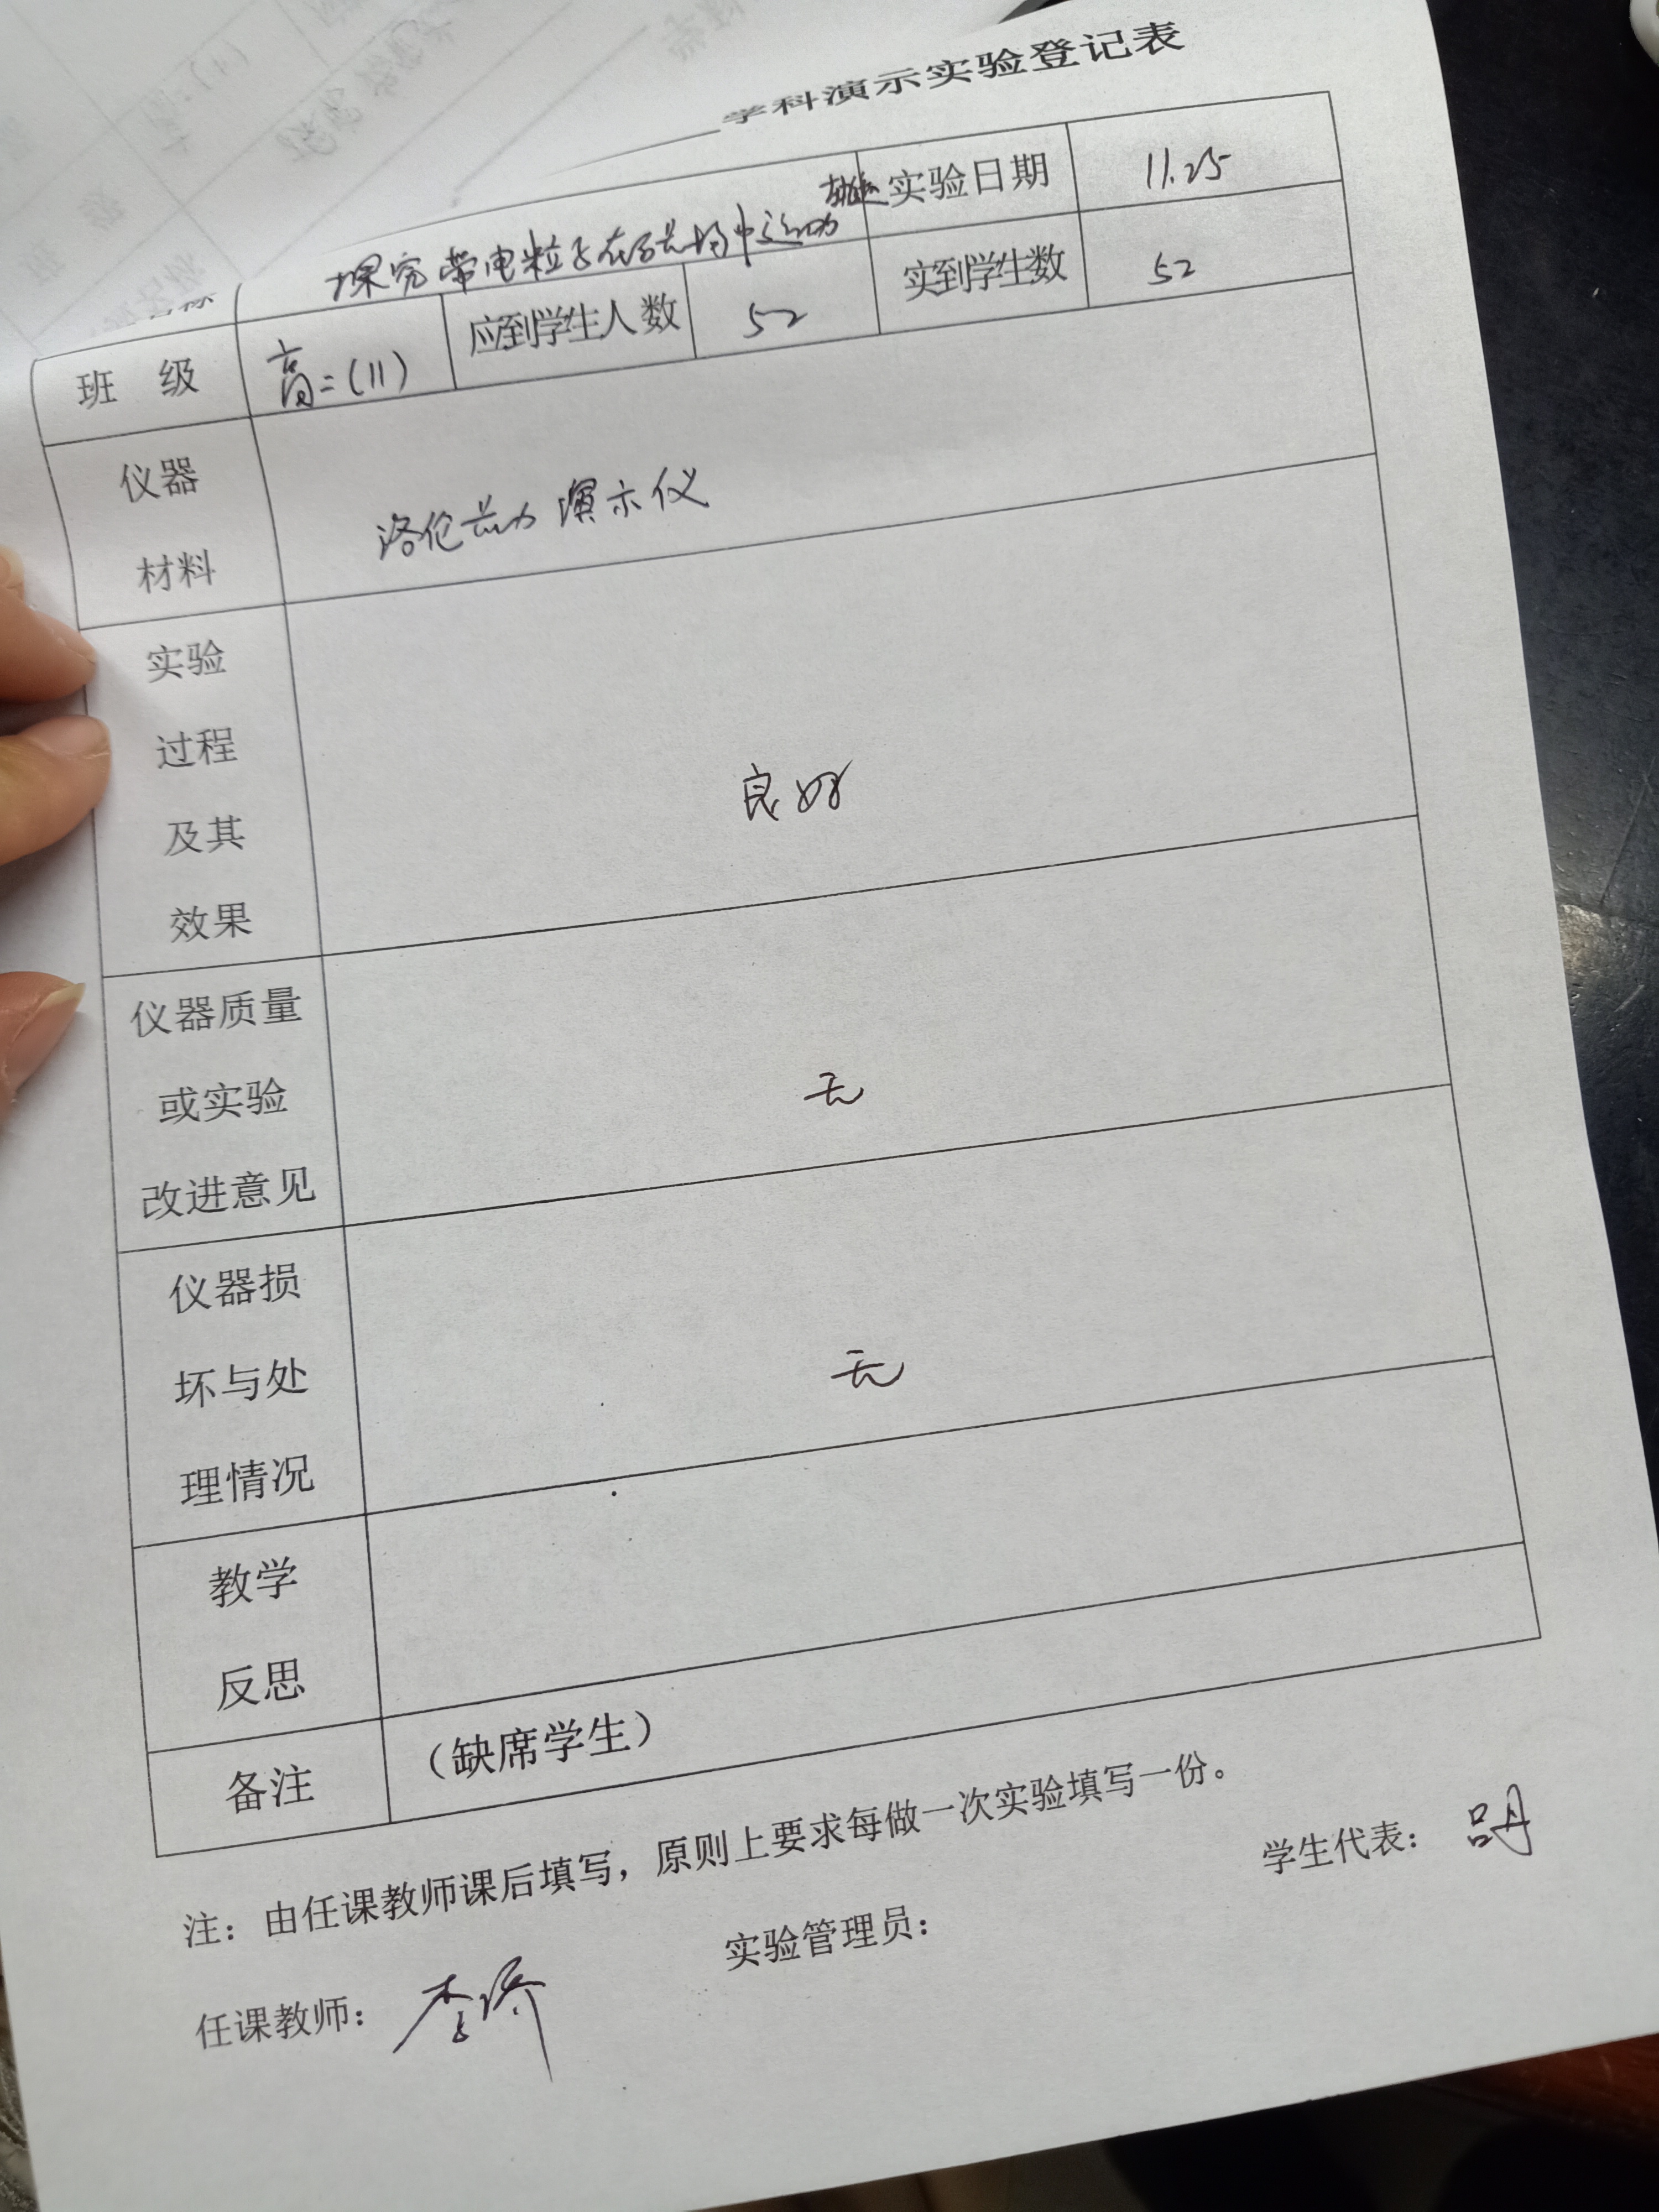 学科演示实验登记表
探究带电粒子在磁场中运动轨迹
实验日期
11.25
班 级
高二(11)
应到学生人数
52
实到学生数
52
仪器
材料
洛伦兹力演示仪
实验
过程
及其
效果
良好
仪器质量
或实验
改进意见
无
仪器损
坏与处
理情况
无
教学
反思
备注
（缺席学生）
注：由任课教师课后填写，原则上要求每做一次实验填写一份。
任课教师：
实验管理员：
学生代表：